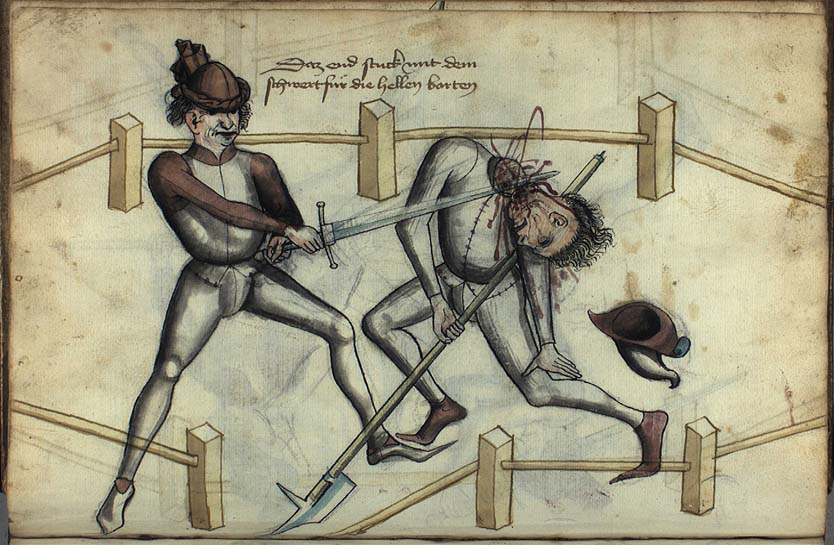 Daz end stuck mit dem
schwert für die hellen barten